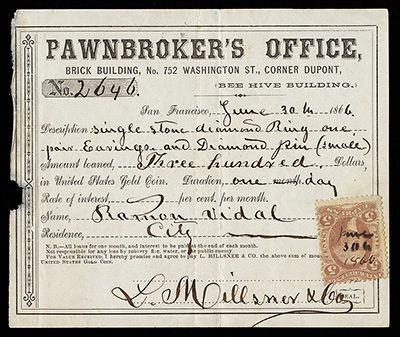 PAWNBROKER'S OFFICE,
BRICK BUILDING, No. 752 WASHINGTON ST., CORNER DUPONT,
(BEE HIVE BUILDING.)
No. 2646.
San Francisco, June 30th 1866
Description single stone diamond Ring one
pair Earings and Diamond pin (small)
Amount loaned, Three hundred Dollars,
in United States Gold Coin. Duration, one month day
Rate of interest, per cent. per month.
Name, Ramon Vidal
Residence, City
N. B.—All loans for one month, and interest to be paid at the end of each month.
Not responsible for any loss by robbery, fire, water, or public enemy.
FOR VALUE RECEIVED, I hereby promise and agree to pay L. MILLSNER & CO. the above sum of
UNITED STATES GOLD COIN.
L. Millsner & Co
SEAL.
5 5
June
30th
1866